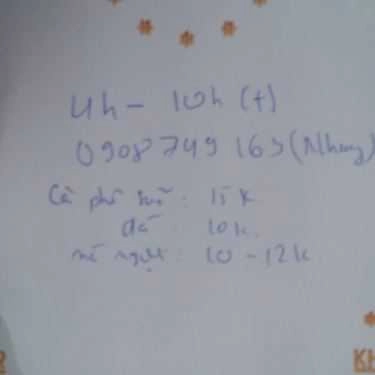 4h - 10h (t)
0908 749 163 (Nhung)
Cà phê sữa : 15 K
đá : 10 K.
: 10 - 12 K